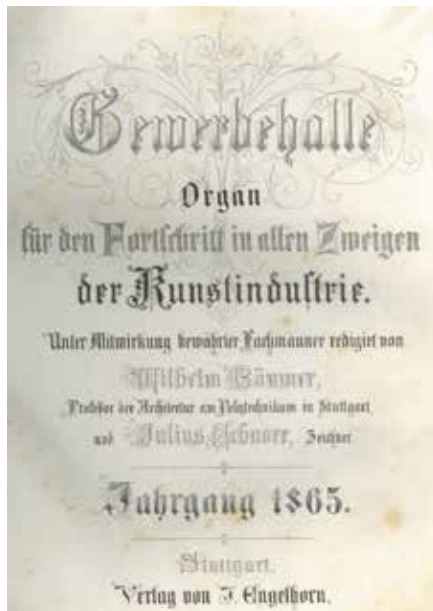 Gewerbehalle
Organ
für den Fortschritt in allen Zweigen
der Kunstindustrie.
Unter Mitwirkung bewährter Fachmänner redigirt von
Wilhelm Bäumer,
Professor der Architektur am Polytechnikum in Stuttgart,
und Julius Schnorr, Zeichner
Jahrgang 1865.
Stuttgart.
Verlag von J. Engelhorn.